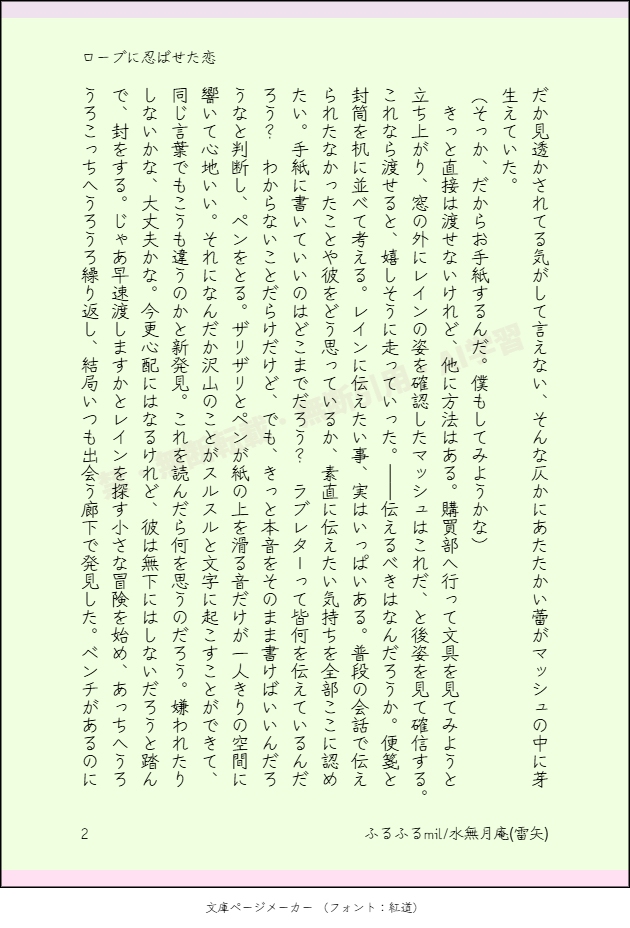 ローブに忍ばせた恋
だか見透かされてる気がして言えない、そんな仄かにあたたかい蕾がマッシュの中に芽
生えていた。
(そっか、だからお手紙するんだ。僕もしてみようかな)
　きっと直接は渡せないけれど、他に方法はある。購買部へ行って文具を見てみようと
立ち上がり、窓の外にレインの姿を確認したマッシュはこれだ、と後姿を見て確信する。
これなら渡せると、嬉しそうに走っていった。――伝えるべきはなんだろうか。便箋と
封筒を机に並べて考える。レインに伝えたい事、実はいっぱいある。普段の会話で伝え
られたなかったことや彼をどう思っているか、素直に伝えたい気持ちを全部ここに認め
たい。手紙に書いていいのはどこまでだろう？　ラブレターって皆何を伝えているんだ
ろう？　わからないことだらけだけど、でも、きっと本音をそのまま書けばいいんだろ
うなと判断し、ペンをとる。ザリザリとペンが紙の上を滑る音だけが一人きりの空間に
響いて心地いい。それになんだか沢山のことがスルスルと文字に起こすことができて、
同じ言葉でもこうも違うのかと新発見。これを読んだら何を思うのだろう。嫌われたり
しないかな、大丈夫かな。今更心配にはなるけれど、彼は無下にはしないだろうと踏ん
で、封をする。じゃあ早速渡しますかとレインを探す小さな冒険を始め、あっちへうろ
うろこっちへうろうろ繰り返し、結局いつも出会う廊下で発見した。ベンチがあるのに
2
ふるふるmil/水無月庵(雷矢)
文庫ページメーカー （フォント：紅道）